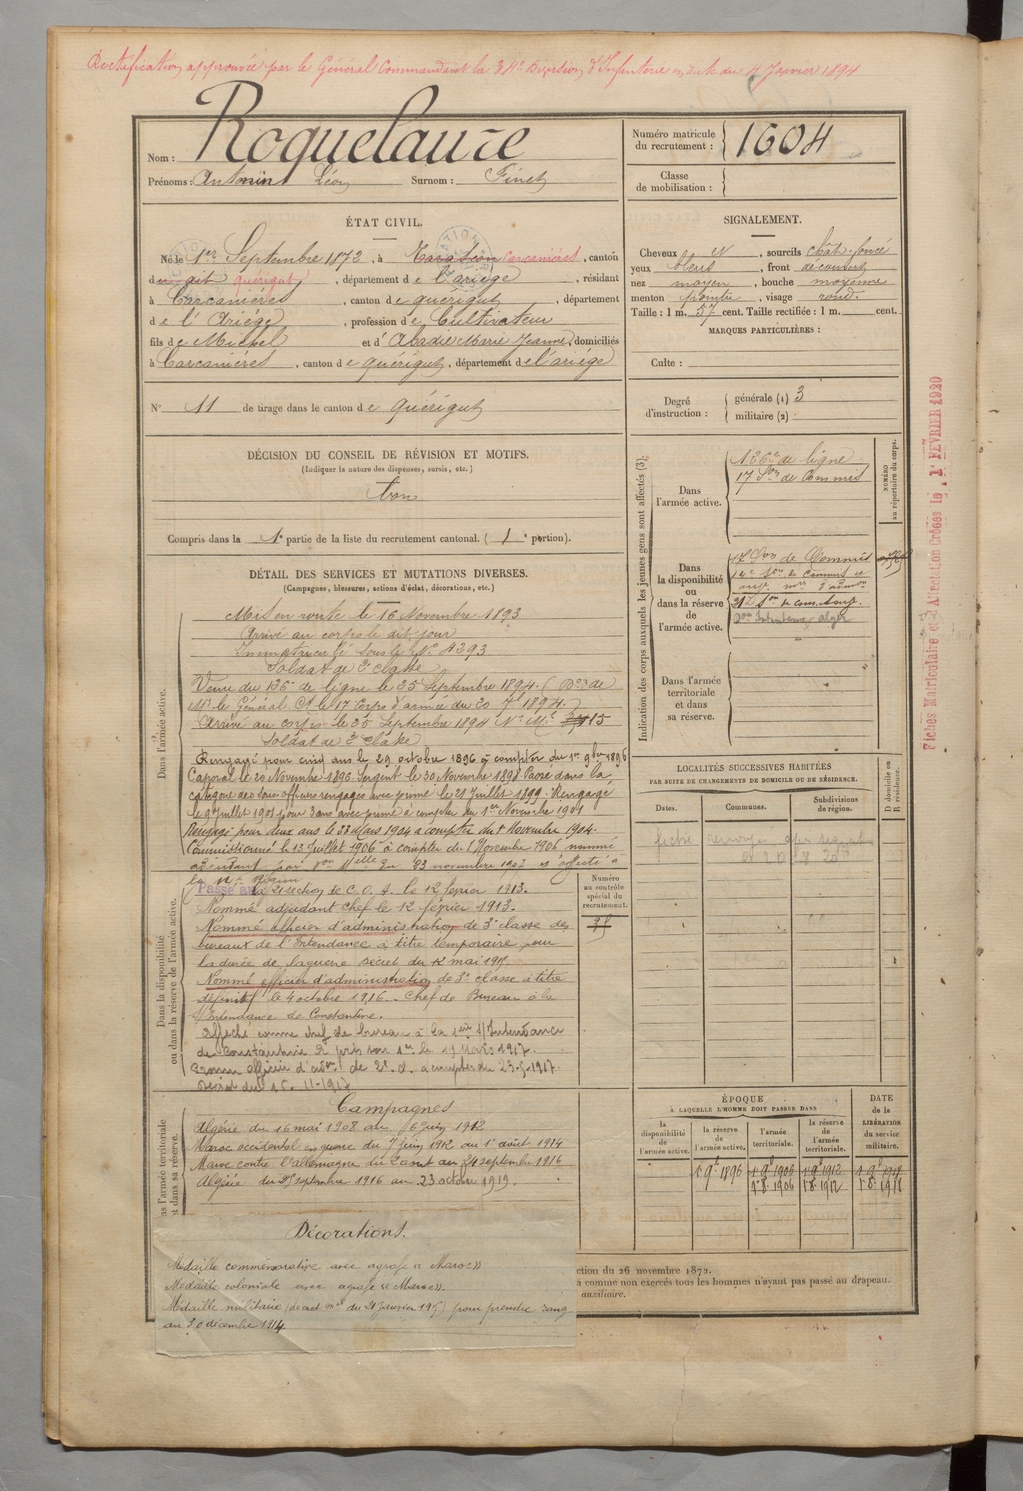 Rectification approuvée par le Général Commandant la 34e Division d'Infanterie en date du 4 Janvier 1894
Nom : Roquelaure
Prénoms : Antonin Léon Surnom : Finet
Numéro matricule du recrutement : 1604
Classe de mobilisation :
ÉTAT CIVIL.
Né le 1er Septembre 1872, à Tarascon Carcanières, canton
dudit Quérigut, département de l'ariège, résidant
à Carcanières, canton de quérigut, département
de l'Ariège, profession de Cultivateur
fils de Michel et d'Abadie Marie Jeanne, domiciliés
à Carcanières, canton de quérigut, département de l'ariège
SIGNALEMENT.
Cheveux et, sourcils chât. foncé
yeux bleus, front découvert
nez moyen, bouche moyenne
menton pointu, visage rond.
Taille : 1 m. 57 cent. Taille rectifiée : 1 m. cent.
MARQUES PARTICULIÈRES :
Culte :
N° 11 de tirage dans le canton de Quérigut
Degré d'instruction : générale (1) 3
militaire (2)
DÉCISION DU CONSEIL DE RÉVISION ET MOTIFS.
(Indiquer la nature des dispenses, sursis, etc.)
bon
Compris dans la 1e partie de la liste du recrutement cantonal. (1e portion).
Indication des corps auxquels les jeunes gens sont affectés (3).
NUMÉRO au répertoire du corps.
Dans l'armée active.
136e de ligne
17 Son de Commis
Dans la disponibilité ou dans la réserve de l'armée active.
17e Son de Commis
Dans l'armée territoriale et dans sa réserve.
DÉTAIL DES SERVICES ET MUTATIONS DIVERSES.
(Campagnes, blessures, actions d'éclat, décorations, etc.)
Dans l'armée active.
Mis en route le 16 Novembre 1893
Arrivé au corps le dit jour
Immatriculé sous le N° 4293
Soldat de 2e classe
Venu du 136e de ligne le 25 Septembre 1894 (Don de
Mr le Général Ct le 17 Corps d'armée du 20 7bre 1894.
Arrivé au corps le 25 Septembre 1894 N° Mle
Soldat de 2e classe
Rengagé pour cinq ans le 29 octobre 1896 à compter du 1er 9bre 1896
Caporal le 20 Novembre 1896 Sergent le 30 Novembre 1898 Passé dans la
catégorie des Sous-officiers rengagés avec prime le 21 Juillet 1899. Rengagé
le 9 Juillet 1901 pour 3 ans avec prime à compter du 1er Novembre 1901
Rengagé pour deux ans le 23 Mars 1904 à compter du 1er Novembre 1904.
Commissionné le 13 Juillet 1906 à compter du 1er Novembre 1906 nommé
adjudant par Don Mlle du 23 novembre 1907 et affecté à
Dans la disponibilité ou dans la réserve de l'armée active.
Passé à la 21 section de C.O.A. le 12 février 1913.
Nommé adjudant chef le 12 février 1913.
Nommé officier d'administration de 3e classe des
bureaux de l'Intendance à titre temporaire pour
la durée de la guerre décret du 12 mai 1915.
Nommé officier d'administration de 3e classe à titre
définitif le 4 octobre 1916. Chef de Bureau à la
S/Intendance de Constantine.
Affecté comme chef de bureau à la 1ère S/Intendance
de Constantine a pris son service le 17 Mars 1917.
Promu officier d'adon de 2e cl. à compter du 23-5-1917.
Décret du 15-11-1917
Numéro au contrôle spécial du recrutement.
LOCALITÉS SUCCESSIVES HABITÉES
PAR SUITE DE CHANGEMENTS DE DOMICILE OU DE RÉSIDENCE.
Dates. Communes. Subdivisions de région.
D domicile ou R résidence.
l'armée territoriale et dans sa réserve.
Campagnes
Algérie du 16 mai 1908 au 6 juin 1912
Maroc occidental en guerre du 7 juin 1912 au 1er août 1914
Maroc contre l'allemagne du 2 août au 24 septembre 1916
Algérie du 25 septembre 1916 au 23 octobre 1919.
ÉPOQUE
À LAQUELLE L'HOMME DOIT PASSER DANS
la disponibilité de l'armée active.
la réserve de l'armée active.
l'armée territoriale.
la réserve de l'armée territoriale.
DATE de la LIBÉRATION du service militaire.
Décorations.
Médaille commémorative avec agrafe « Maroc »
Médaille coloniale avec agrafe « Maroc »
Médaille militaire (décret mel du 21 Janvier 1915) pour prendre rang
du 30 décembre 1914
ction du 26 novembre 1872.
a comme non exercés tous les hommes n'ayant pas passé au drapeau.
auxiliaire.
Fiches Matriculaire et d'Affectation Créées le 1er FÉVRIER 1920